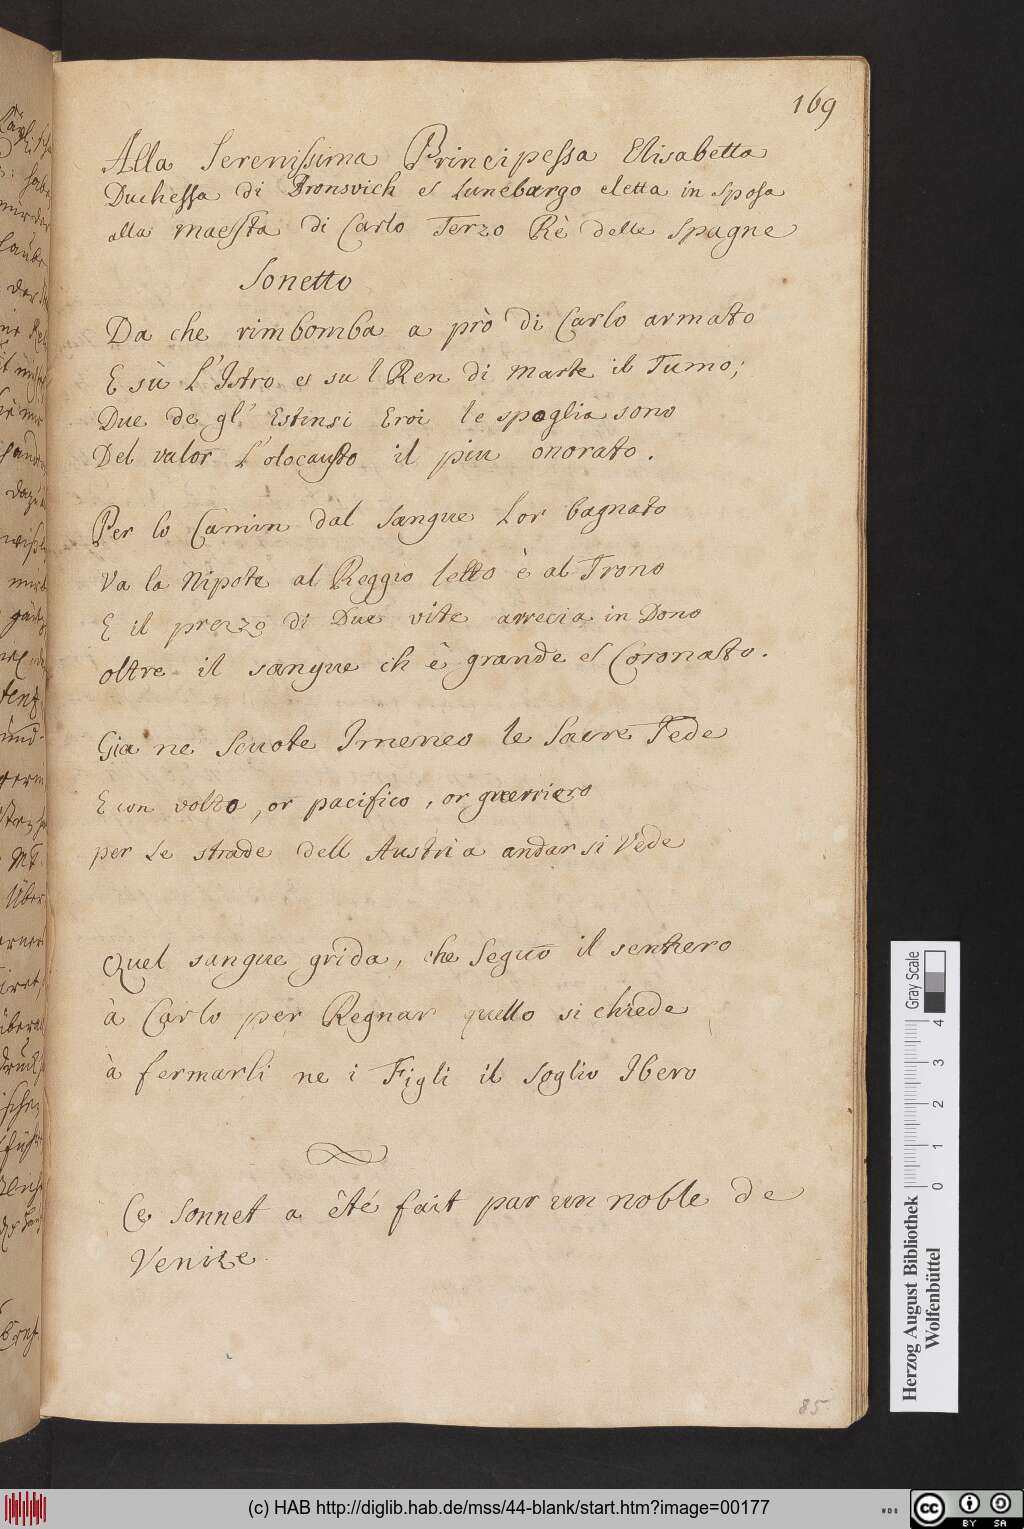 169
Alla Serenissima Principessa Elisabetta
Duchessa di Bronsvich et Luneburgo eletta in sposa
alla maesta di Carlo Terzo Rè delle Spagne
Sonetto
Da che rimbomba a prò di Carlo armato
E sù L'Istro et su l Ren di Marte il Tumo;
Due de gl' Estensi Eroi le spoglia sono
Del valor L'olocausto il piu onorato.
Per lo Camin dal sangue Lor bagnato
Va la Nipote al Reggio letto è al Trono
E il prezzo di Due vite arrecia in Dono
oltre il sangue ch è grande et Coronato.
Gia ne Scuote Imeneo le Sacre Tede
E con volto, or pacifico, or guerriero
per Le strade dell Austria andar si Vede
Quel sangue grida, che Seguo il sentiero
à Carlo per Regnar quello si chiede
à fermarli ne i Figli il soglio Ibero
Ce sonnet a êté fait par un noble de
Venize
85
Gray Scale
0 1 2 3 4
Herzog August Bibliothek
Wolfenbüttel
(c) HAB http://diglib.hab.de/mss/44-blank/start.htm?image=00177
WDB
cc BY SA